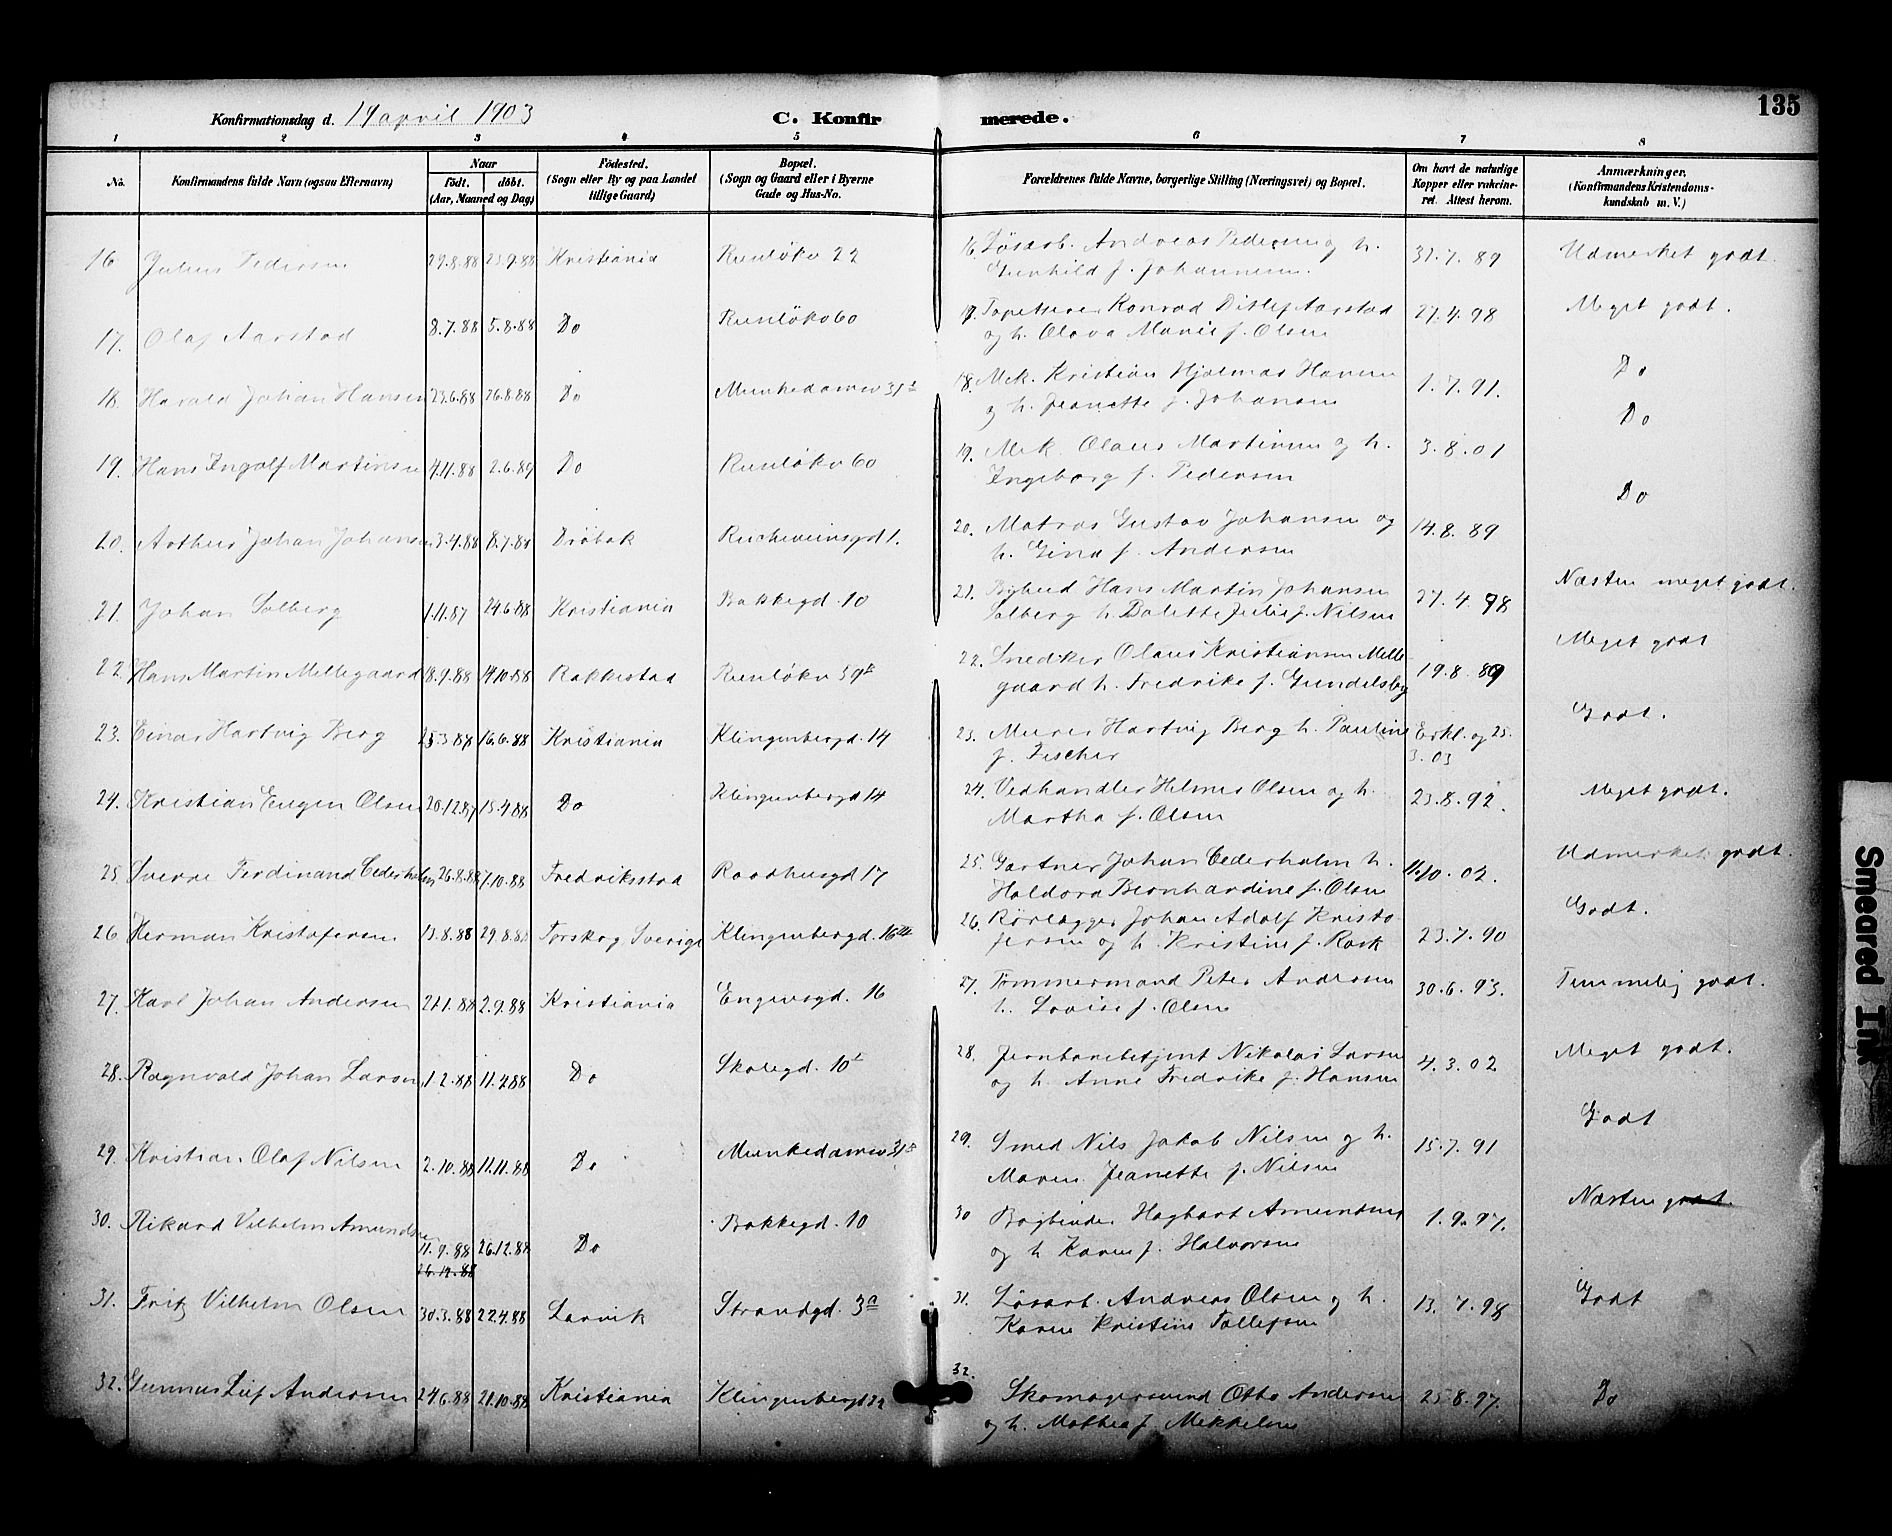 135
Konfirmationsdag d. 19 april 1903
C. Konfirmerede.
1 2 3 4 5 6 7 8
No.
Konfirmandens fulde Navn (ogsaa Efternavn)
Naar
födt. döbt.
(Aar, Maaned og Dag)
Födested.
(Sogn eller By og paa Landet
tillige Gaard)
Bopæl.
(Sogn og Gaard eller i Byerne
Gade og Hus-No.
Forældrenes fulde Navne, borgerlige Stilling (Næringsvei) og Bopæl.
Om havt de naturlige
Kopper eller vakcine-
ret. Attest herom.
Anmærkninger,
(Konfirmandens Kristendoms-
kundskab m.V.)
16 Julius Pedersen 29.8.88 23.9.88 Kristiania Ruseløkv 22
16. Løsarb. Andreas Pedersen og h.
Gunhild f. Johannesen. 31.7.89 Udmerket godt.
17. Olaf Aarstad 8.7.88 5.8.88 Do Ruseløkv 60
17. Tapetserer Konrad Ditlef Aarstad
og h. Olava Marie f. Olsen 27.4.98 Meget godt.
18. Harald Johan Hansen 23.6.88 26.8.88 Do Munkedamsv 31
18. Mek. Kristian Hjalmar Hansen
og h. Jeanette f. Johansen 1.7.91. Do
19. Hans Ingolf Martinsen 4.11.88 2.6.89 Do Ruseløkv 60
19. Mek. Olaus Martinsen og h.
Ingeborg f. Pedersen 3.8.01 Do
20. Arthur Johan Johansen 3.4.88 8.7.88 Drøbak Reichweinsgd 1.
20. Matros Gustav Johansen og
h. Gina f. Andersen 14.8.89 Do
21. Johan Solberg 1.11.87 24.6.88 Kristiania Bakkegd. 10
21. Bybud Hans Martin Johansen
Solberg h. Dolette Julie f. Nilsen 27.4.98 Næsten meget godt.
22. Hans Martin Mellegaard 18.9.88 14.10.88 Rakkestad Ruseløkv 59
22. Snedker Olaus Kristiansen Melle
gaard h. Fredrike f. Gundelsby 19.8.89 Meget godt
23. Einar Hartvig Berg 25.3.88 16.6.88 Kristiania Klingenbergd. 14
23. Murer Hartvig Berg h. Pauline
f. Fischer Erkl. og 25.
3.03 Godt.
24. Kristian Eugen Olsen 20.12.87 15.4.88 Do Klingenbergd 14
24. Vedhandler Helmer Olsen og h.
Martha f. Olsen 23.8.92. Meget godt.
25 Sverre Ferdinand Cederholm 26.8.88 7.10.88 Fredriksstad Raadhusgd 17
25. Gartner Johan Cederholm h.
Haldora Bernhardine f. Olsen 11.10.02. Udmerket godt.
26 Herman Kristofersen 13.8.88 29.8.88 Torskog Sverige Klingenbergd. 16
26. Rørlægger Johan Adolf Kristo
fersen og h. Kristine f. Rask 23.7.90 Godt.
27. Karl Johan Andersen 21.1.88 2.9.88 Kristiania Engensgd. 16
27. Tømmermand Peter Andersen
h. Lovise f. Olsen 30.6.93. Temmelig godt.
28. Ragnvald Johan Larsen 1.2.88 11.4.88 Do Skolegd. 10
28. Jernbanebetjent Nikolai Larsen
og h. Anne Fredrike f. Hansen 4.3.02 Meget godt.
29. Kristian Olaf Nilsen 2.10.88 11.11.88 Do Munkedamsv 31
29. Smed Nils Jakob Nilsen og h.
Maren Jeanette f. Nilsen 15.7.91 Godt
30. Rikard Vilhelm Amundsen 11.9.88 26.12.88 Do Bakkegd. 10
26.12.88
30 Bogbinder Hagbart Amundsen
og h Karen f. Halvorsen 1.9.97. Næsten godt.
31. Fritz Vilhelm Olsen 30.3.88 22.4.88 Larvik Strandgd. 3a
31. Løsarb. Andreas Olsen og h.
Karen Kristine Tollefsen 13.7.98 Godt
32. Gunnar Leif Andersen 24.6.88 21.10.88 Kristiania Klingenbergd
32. Skomagersvend Otto Andersen
og h. Mathea f. Mekkelsen 25.8.97. Do
Smeared Ink